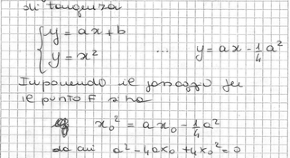 di tangenza
y = ax + b
y = x² ... y = ax - ¼a²
Imponendo il passaggio per
il punto F si ha
x₀² = ax₀ - ¼a²
da cui a² - 4ax₀ + 4x₀² = 0